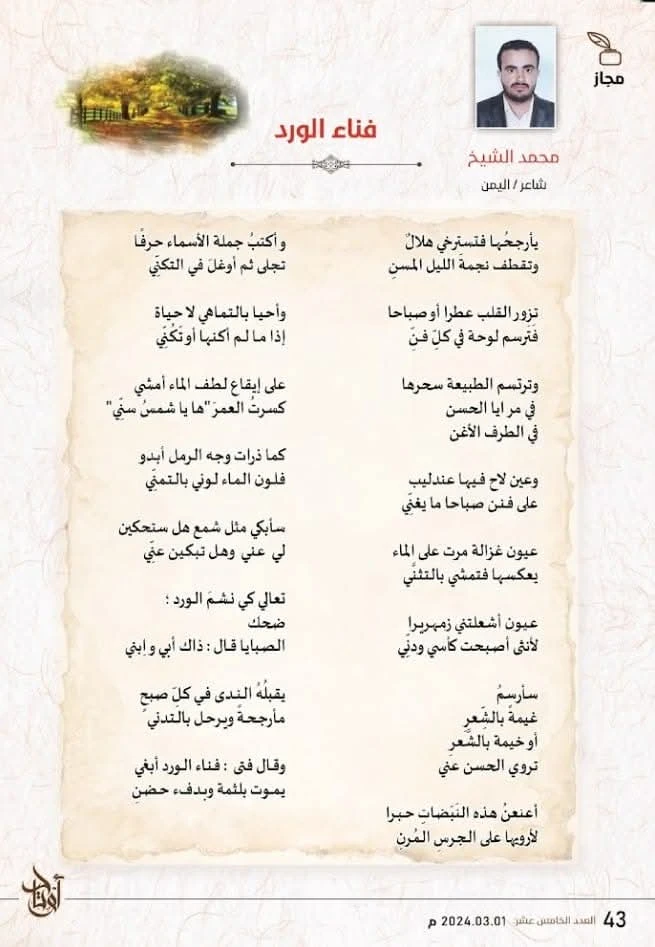 مجاز
محمد الشيخ
شاعر / اليمن
فناء الورد
يأرجحُها فتسترخي هلالٌ
وتقطف نجمةَ الليل المسنِ
تزور القلب عطرا أو صباحا
فَترسم لوحة في كلِ فنِّ
وترتسم الطبيعة سحرها
في مرايا الحسن
في الطرف الأغن
وعين لاح فيها عندليب
على فنن صباحا ما يغنِّي
عيون غزالة مرت على الماء
يعكسها فتمشي بالتثنَّي
عيون أشعلتني زمهريرا
لأنثى أصبحت كأسي ودنِّي
سأرسمُ
غيمةً بالشِّعرِ
أو خيمة بالشَّعرِ
تروي الحسن عني
أعنعنُ هذه النَبَضاتِ حبرا
لأرويها على الجرسِ المُرنِ
وأكتبُ جملة الأسماء حرفًا
تجلى ثم أوغلَ في التكنِّي
وأحيا بالتماهي لا حياة
إذا ما لم أكنها أو تَكُنِّي
على إيقاع لطف الماء أمشي
كسرتُ العمرَ "ها يا شمسُ سنِّي"
كما ذرات وجه الرمل أبدو
فلون الماء لوني بالتمنِّي
سأبكي مثل شمع هل ستحكين
لي عني وهل تبكين عنِّي
تعالي كي نشمَ الورد ؛
ضحك
الصبايا قال : ذاك أبي وابني
يقبلُهُ الندى في كلِ صبحٍ
مأرجحةً ويرحل بالتدني
وقال فتى : فناء الورد أبغي
يموت بلثمة وبدفء حضنِ
أوتاد
43 العدد الخامس عشر: 2024.03.01 م